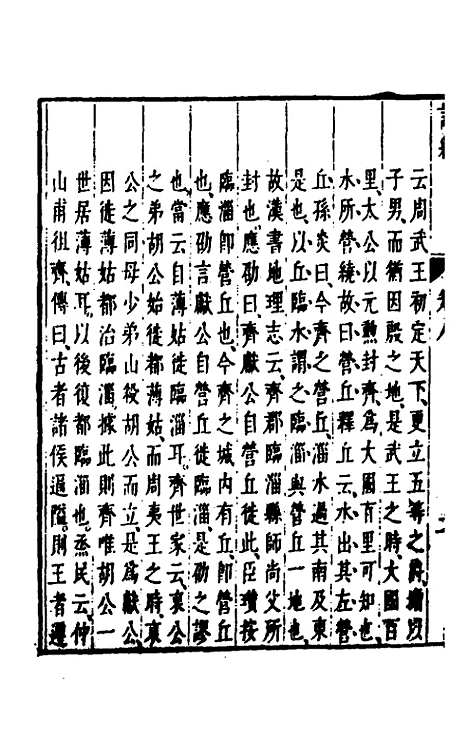 云周武王初定天下更立五等之爵增以
子男而猶因殷之地是武王之時大國百
里太公以元勲封齊爲大國百里可知也
水所營繞故曰營丘釋丘云水出其左營
丘孫炎曰今齊之營丘淄水過其南及東
是也以丘臨水謂之臨淄與營丘一地也
故漢書地理志云齊郡臨淄縣師尚父所
封也應劭曰齊獻公自營丘徙此臣瓚按
臨淄即營丘也今齊之城内有丘即營丘
也應劭言獻公自營丘徙臨淄是劭之謬
也當云自薄姑徙臨淄耳齊世家云哀公
之弟胡公始徙都薄姑而周夷王之時哀
公之同母少弟山殺胡公而立是爲獻公
因徙薄姑都治臨淄據此則齊唯胡公一
世居薄姑耳以後復都臨淄也烝民云仲
山甫徂齊傳曰古者諸侯逼隘則王者遷